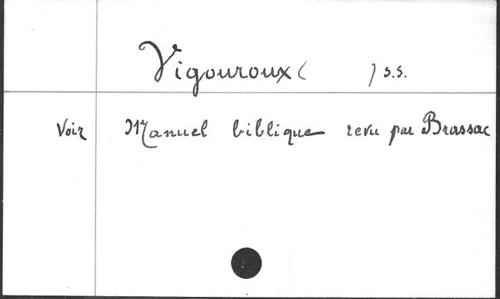 Vigouroux ( ) s.s.
Voir Manuel biblique revu par Brassac